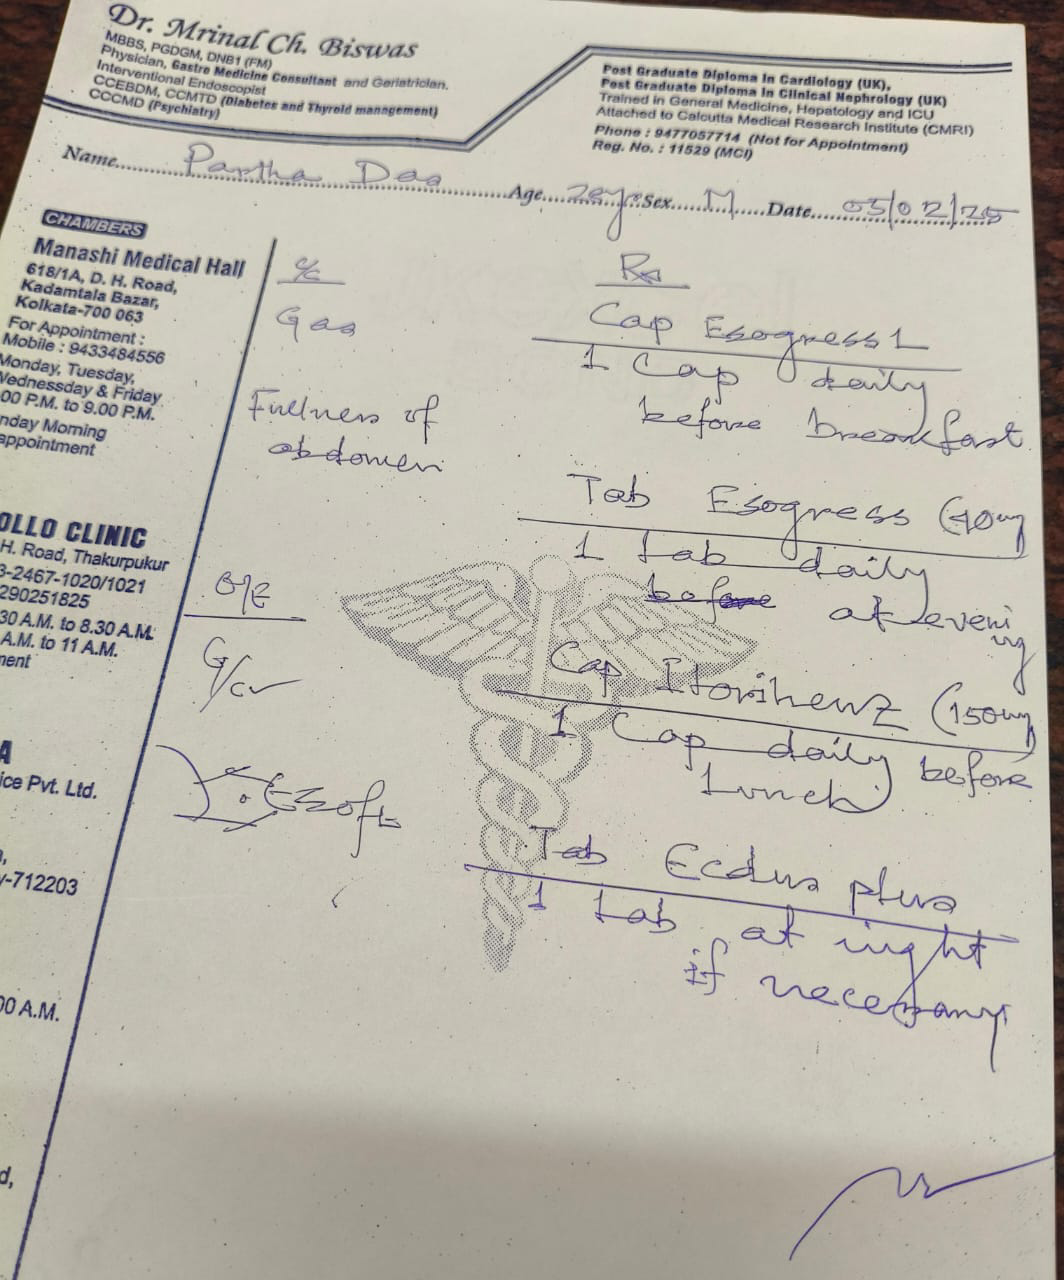 Dr. Mrinal Ch. Biswas
MBBS, PGDGM, DNB1 (FM)
Physician, Gastro Medicine Consultant and Geriatrician.
Interventional Endoscopist
CCEBDM, CCMTD (Diabetes and Thyroid management)
CCCMD (Psychiatry)
Post Graduate Diploma In Cardiology (UK),
Post Graduate Diploma in Clinical Nephrology (UK)
Trained in General Medicine, Hepatology and ICU
Attached to Calcutta Medical Research Institute (CMRI)
Phone : 9477057714 (Not for Appointment)
Reg. No. : 11529 (MCI)
Name Partha Das Age Sex M Date 05/02/25
CHAMBERS
Manashi Medical Hall
618/1A, D. H. Road,
Kadamtala Bazar,
Kolkata-700 063
For Appointment :
Mobile : 9433484556
Monday, Tuesday,
Wednessday & Friday
00 P.M. to 9.00 P.M.
nday Morning
appointment
OLLO CLINIC
H. Road, Thakurpukur
3-2467-1020/1021
290251825
30 A.M. to 8.30 A.M.
A.M. to 11 A.M.
ment
A
ice Pvt. Ltd.
y-712203
00 A.M.
d,
c/c
Gas
Fullness of
abdomen
O/E
soft
Rx
Cap Esogress L
1 Cap daily
before breakfast
Tab Esogress (40mg
1 tab daily
at eveni
ng
Cap (150mg
1 Cap daily before
Lunch
Tab plus
1 tab at night
if necessary